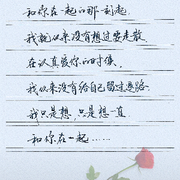 和你在一起的那一刻起
我就从来没有想过要走散
在认真爱你的时候、
我从来没有给自己留过退路
我只是想,只是想一直
和你在一起……